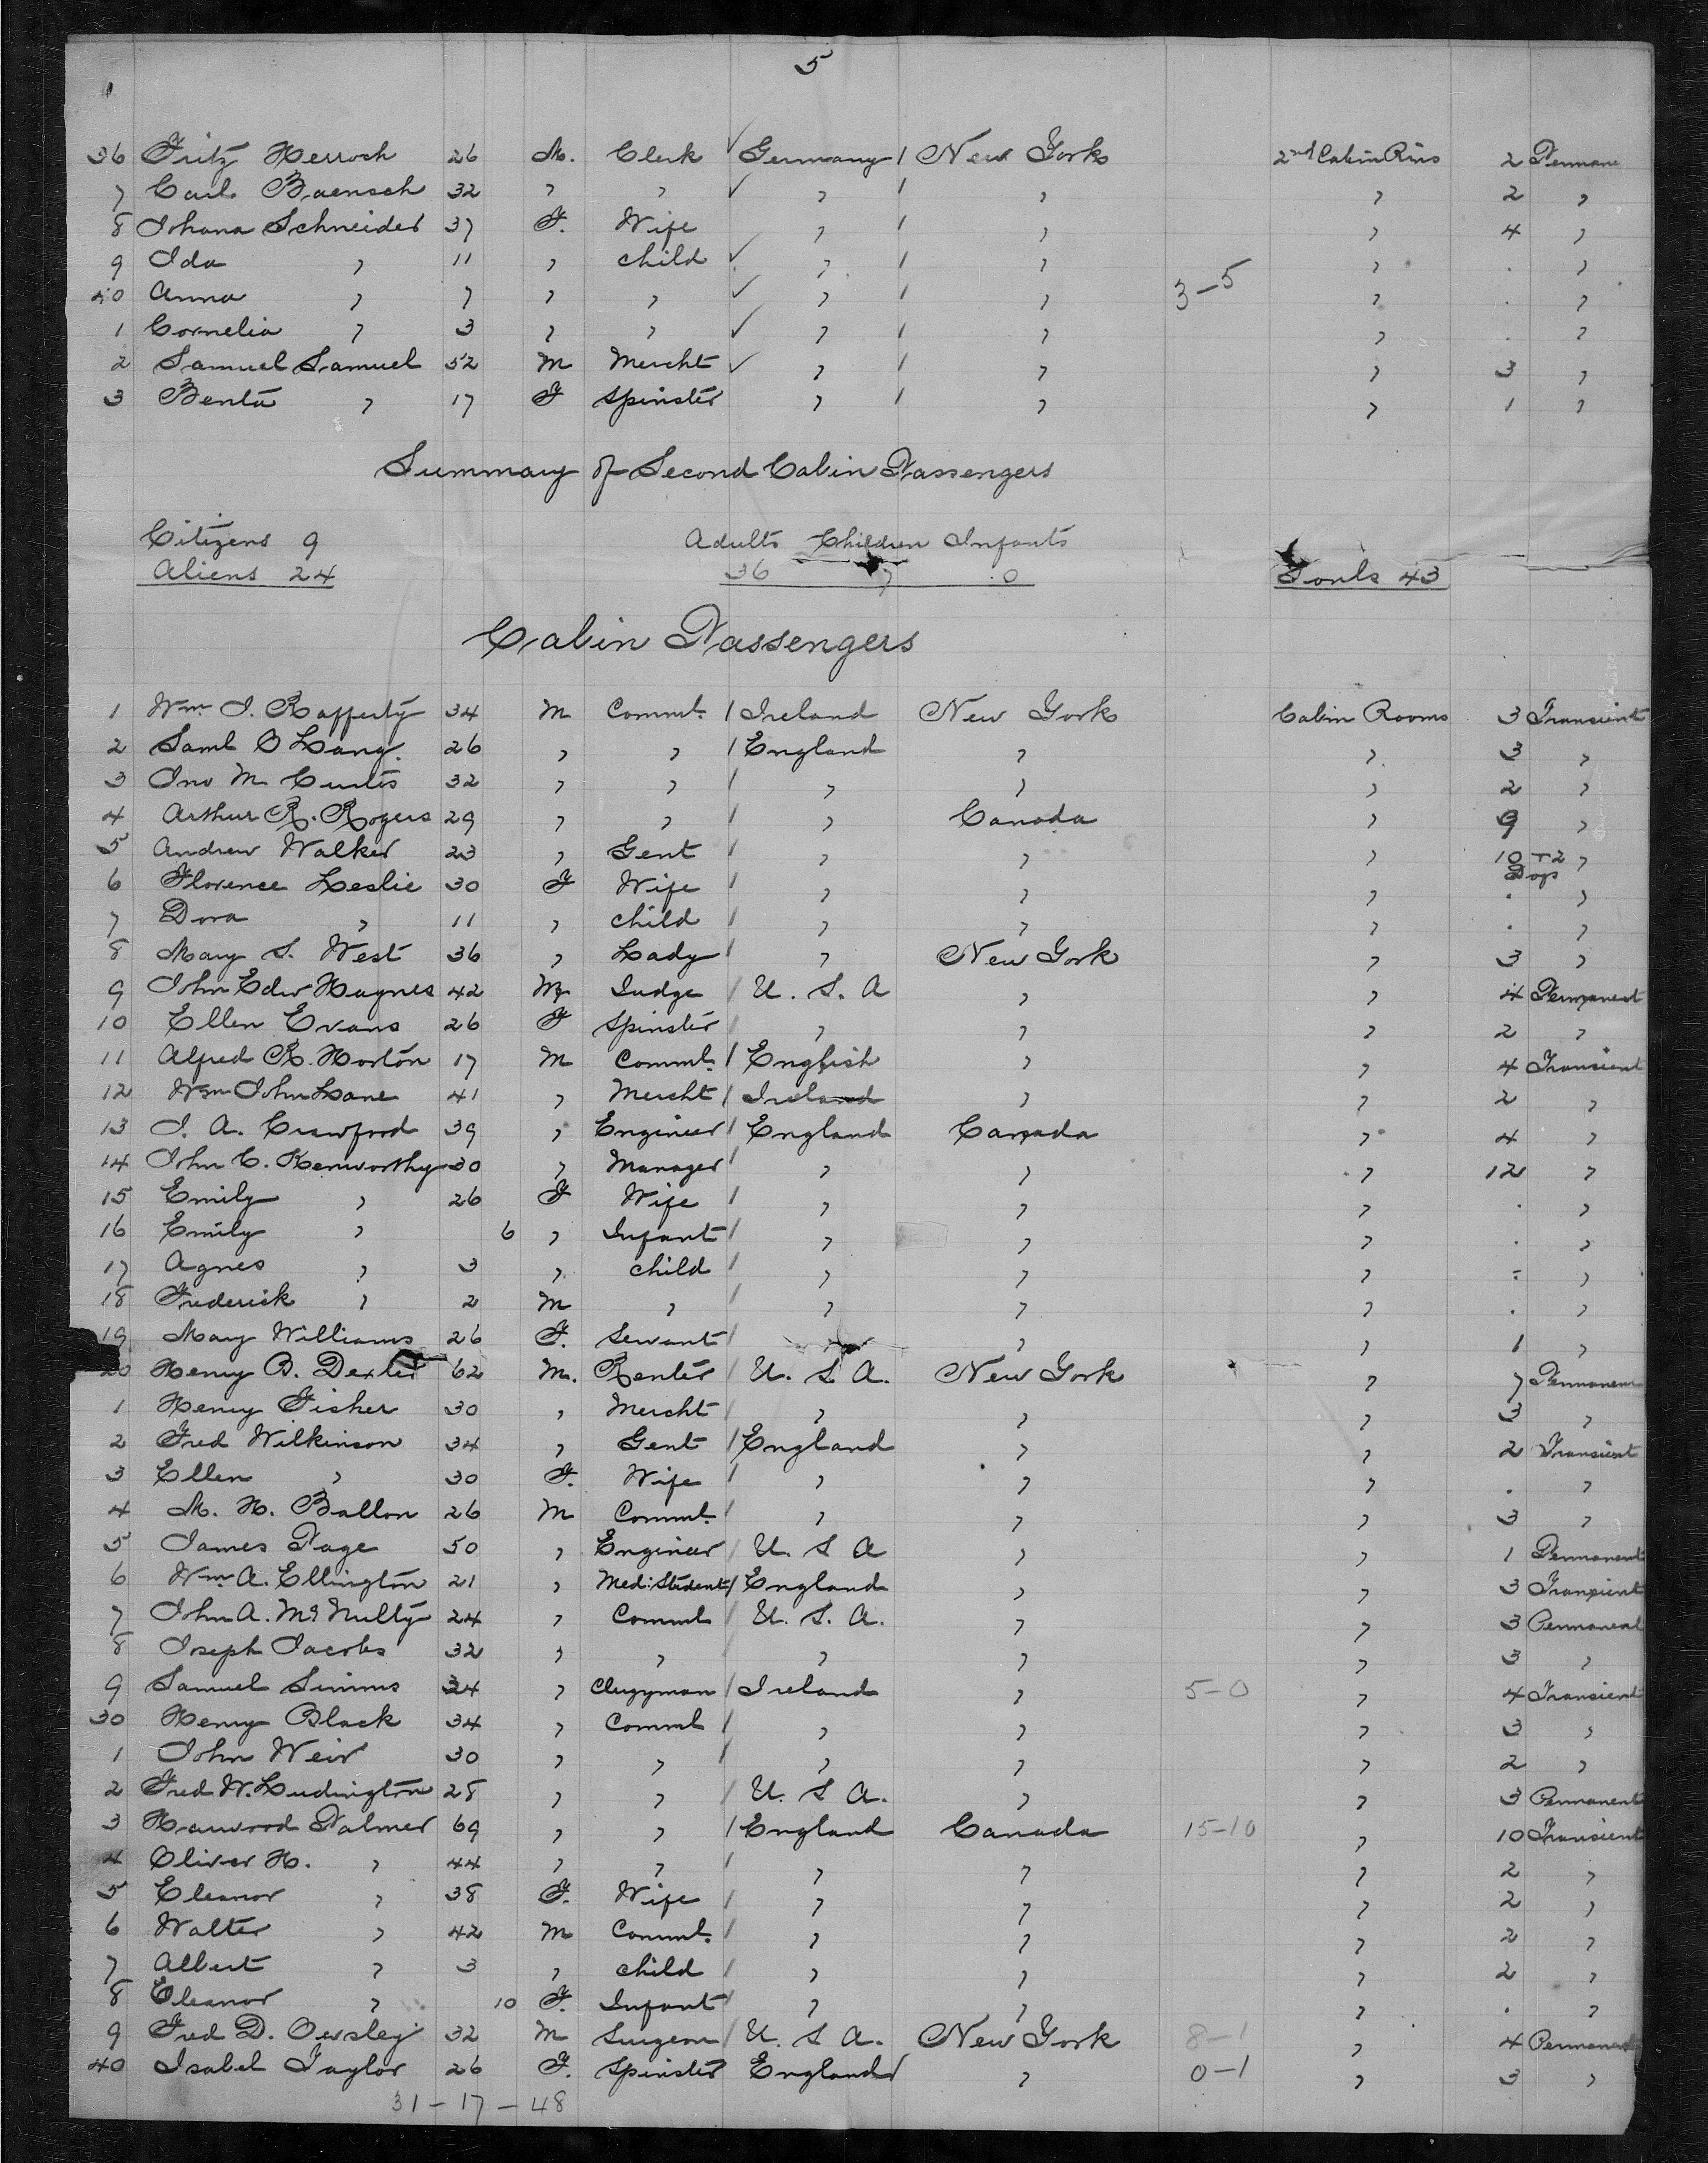 5
36 Fritz Herroch 26 M. Clerk Germany New York 2nd Cabin Rms 2 Permane
7 Carl Baensch 32 " " " " " 2 "
8 Johana Schneider 37 F. Wife " " " 4 "
9 Ida " 11 " child " " " . "
40 Anna " 7 " " " " 3-5 " . "
1 Cornelia " 3 " " " " " . "
2 Samuel Samuel 52 M Mercht " " " 3 "
3 Benta " 17 F Spinster " " " 1 "
Summary of Second Cabin Passengers
Citizens 9 Adults Children Infants
Aliens 24 36 7 0 Souls 43
Cabin Passengers
1 Wm J. Rafferty 34 M Comml. Ireland New York Cabin Rooms 3 Transient
2 Saml O Lang. 26 " " England " " 3 "
3 Jno M Curtis 32 " " " " " 2 "
4 Arthur R. Rogers 29 " " " Canada " 9 "
5 Andrew Walker 23 " Gent " " " 10 + 2 Dogs "
6 Florence Leslie 30 F Wife " " " . "
7 Dora " 11 " child " " " . "
8 Mary S. West 36 " Lady " New York " 3 "
9 John Edw Haynes 42 M Judge U. S. A " " 4 Permanent
10 Ellen Evans 26 F Spinster " " " 2 "
11 Alfred R. Horton 17 M Comml. English " " 4 Transient
12 Wm John Lane 41 " Mercht Ireland " " 2 "
13 J. A. Crawford 39 " Engineer England Canada " 4 "
14 John C. Kenworthy 30 " Manager " " " 12 "
15 Emily " 26 F Wife " " " . "
16 Emily " 6 " Infant " " " . "
17 Agnes " 3 " child " " " . "
18 Frederick " 2 M " " " " . "
19 Mary Williams 26 F. Servant " " " 1 "
20 Henry B. Dexter 62 M. Renter U. S. A. New York " 7 Permanent
1 Henry Fisher 30 " Mercht " " " 3 "
2 Fred Wilkinson 34 " Gent England " " 2 Transient
3 Ellen " 30 F. Wife " " " . "
4 M. H. Ballon 26 M Comml. " " " 3 "
5 James Page 50 " Engineer U. S A " " 1 Permanent
6 Wm A. Ellington 21 " Med: Student England " " 3 Transient
7 John A. McNulty 24 " Comml U. S. A. " " 3 Permanent
8 Joseph Jacobs 32 " " " " " 3 "
9 Samuel Simms 34 " Clergyman Ireland " 5-0 " 4 Transient
30 Henry Black 34 " Comml " " " 3 "
1 John Weir 30 " " " " " 2 "
2 Fred W. Ludington 28 " " U. S A. " " 3 Permanent
3 Harwood Palmer 69 " " England Canada 15-10 " 10 Transient
4 Oliver H. " 44 " " " " " 2 "
5 Eleanor " 38 F. Wife " " " 2 "
6 Walter " 42 M Comml. " " " 2 "
7 Albert " 3 " child " " " 2 "
8 Eleanor " 10 F. Infant " " " . "
9 Fred D. Owsley 32 M Surgeon U. S A. New York 8-1 " 4 Permanent
40 Isabel Taylor 26 F. Spinster England " 0-1 " 3 "
31-17-48